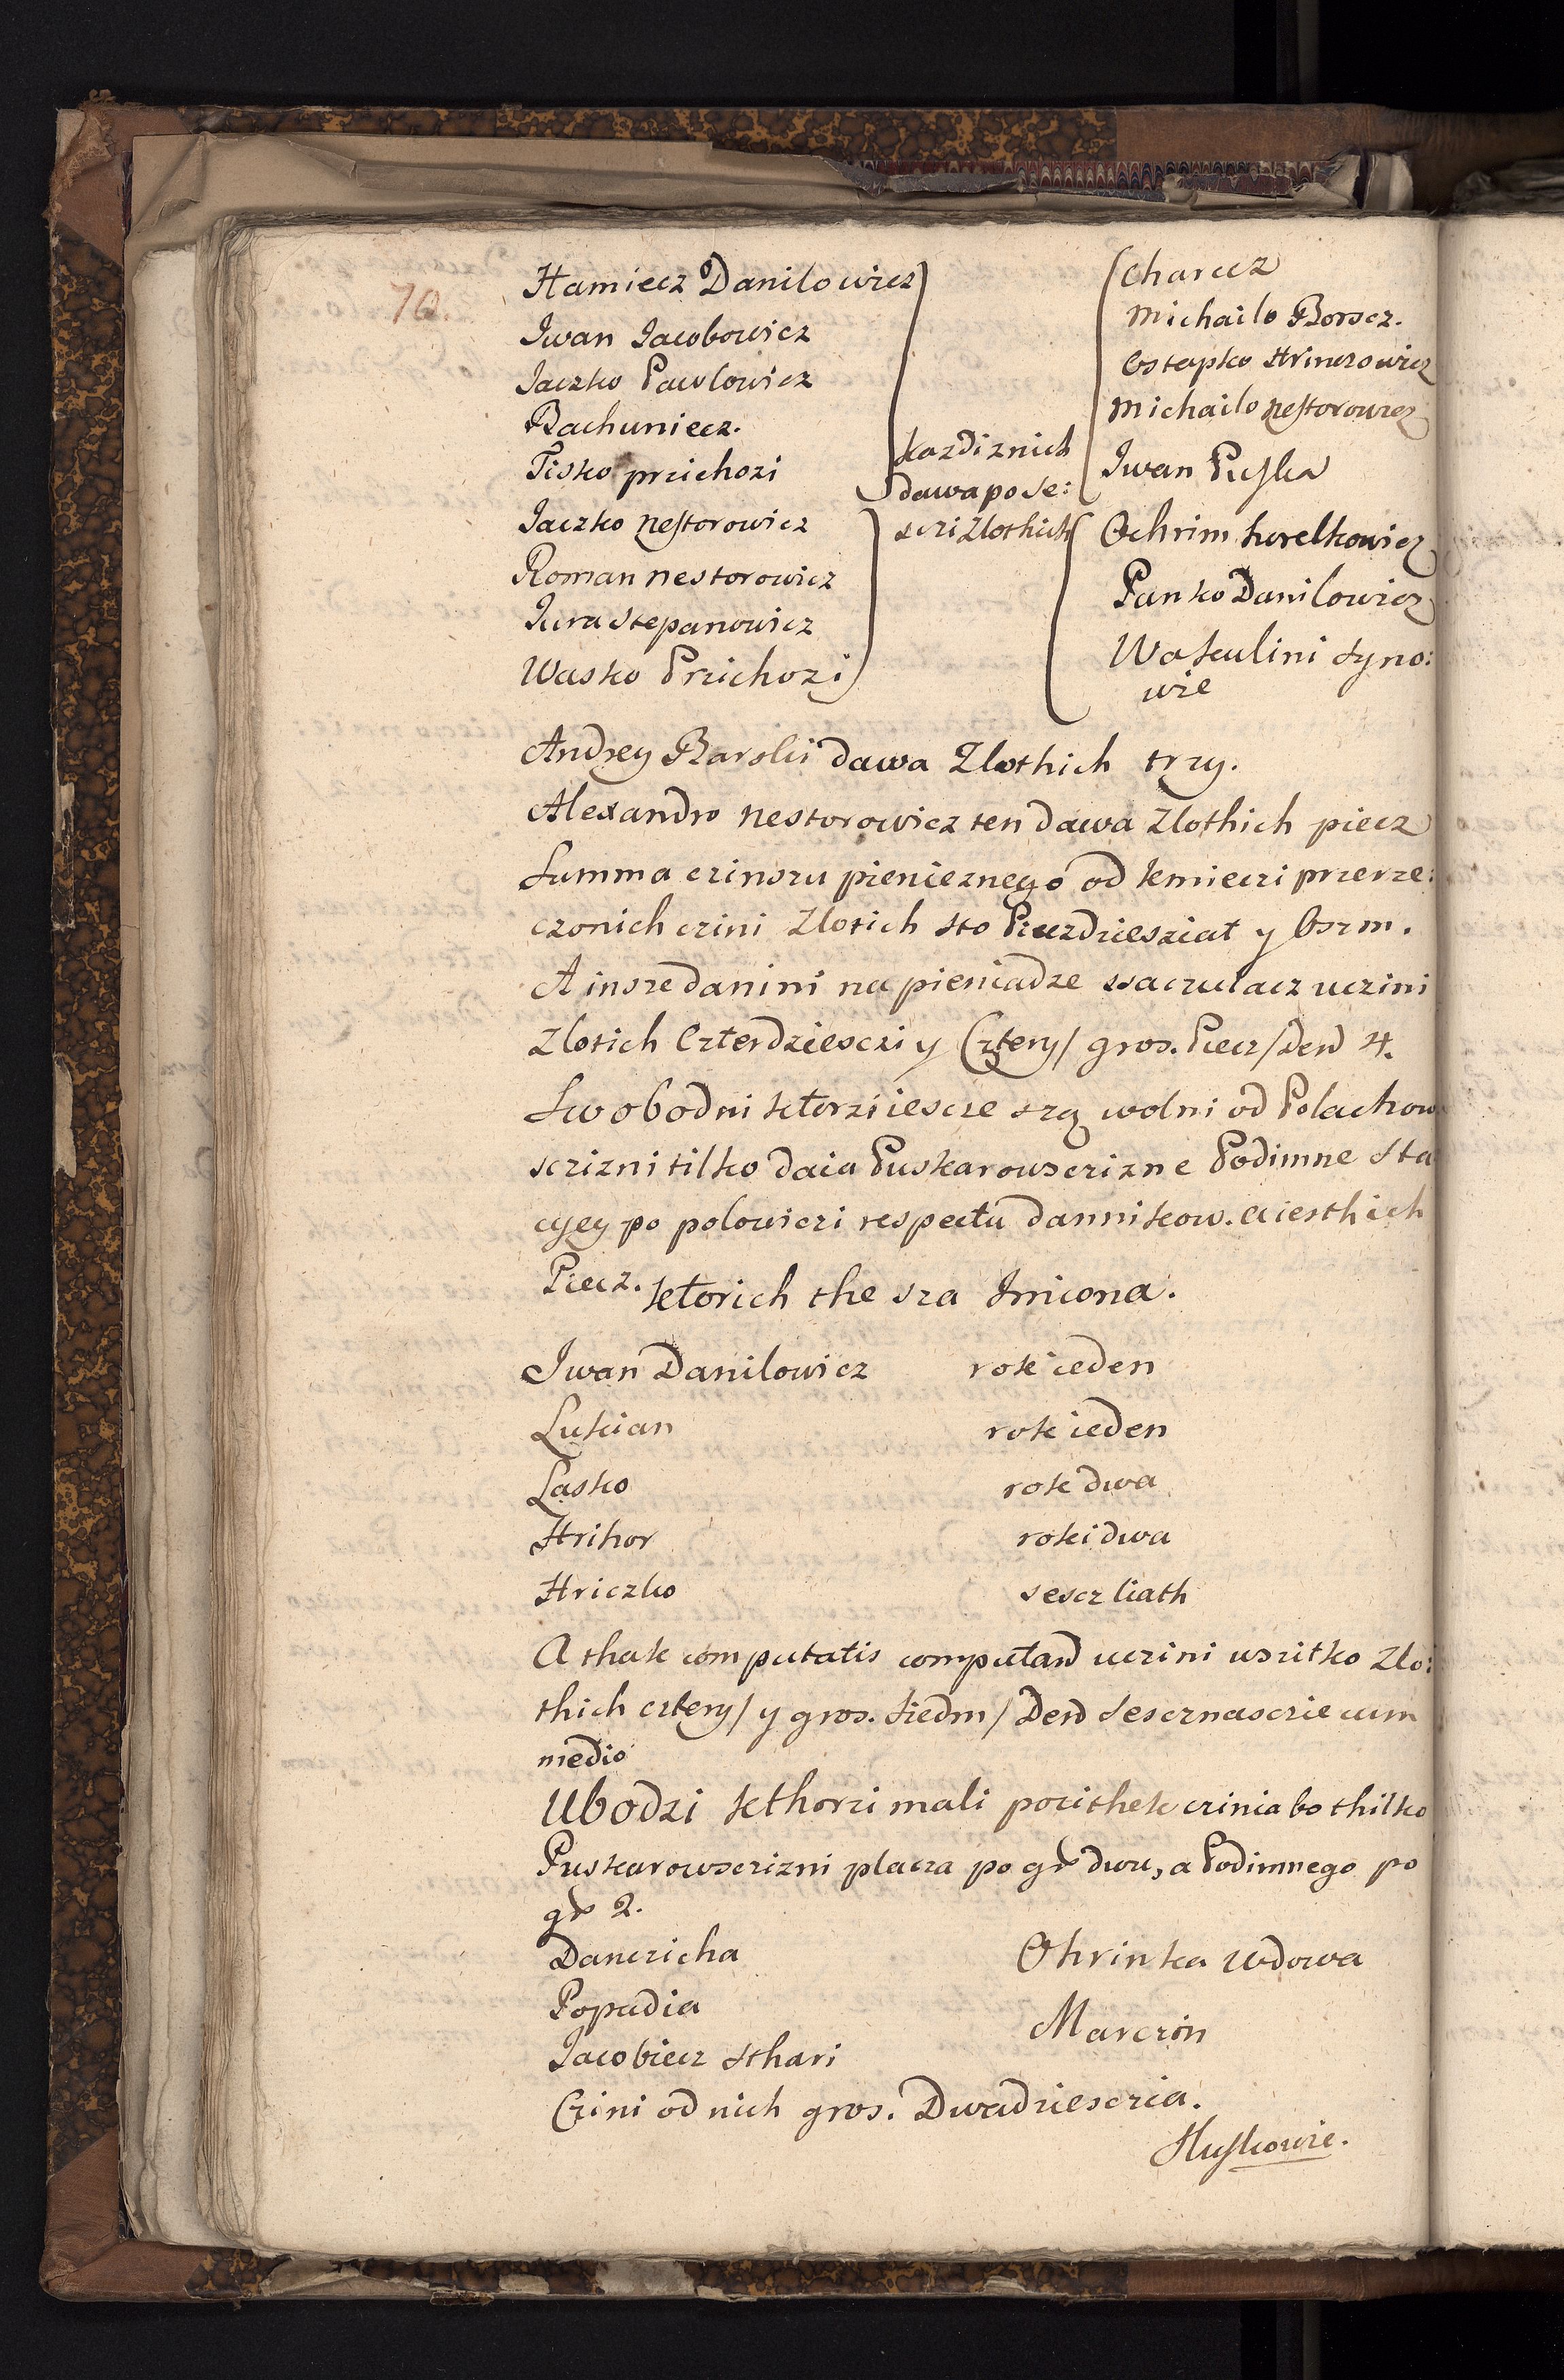 70.
Hamiecz Danilowicz
Iwan Iacobowicz
Iaczko Pawlowicz
Rachuniecz.
Tisko prichozi
Iaczko Nestorowicz
Roman Nestorowicz
Iura Stepanowicz
Wasko Prichozi
kazdi znich
dawa po se:
sczi Zlothich
Charcz
Michailo Borscz.
Ostapko Hrinczowicz
Michailo Nestorowicz
Iwan Puska
Ochrim kurelkowicz
Panko Danilowicz
Waskulini syno:
wie
Andrey Barski dawa Zlothich trzy.
Alexandro Nestorowicz ten dawa Zlothich piecz
Summa czinszu pienieznego od kmieczi przerze:
czonich czini Zlotich sto Piczdziesziat y Oszm.
A insze danini na pieniadze ssaczulacz uczini
Zlotich Czterdziesczi y Cztery/ gros. Piecz/ Den 4.
Swobodni ktorzi iescze szą wolni od Polachow
scrizni tilko daia Puskarowscrizne Podimne Sta
cyey po polowiczi respectu dannikow. a iesth ich
Piecz. ktorich the sza Imiona.
Iwan Danilowicz rok ieden
Lukian rok ieden
Lasko rok dwa
Hrihor roki dwa
Hriczko sescz liath
A thak computatis computand uczini wszitko Zlo:
thich cztery/ y gros. siedm/ Den Sescznasczie cum
medio
Ubodzi kthorzi mali pozithek czinia bo thilko
Puskarowsczizni placza po gr dwu, a Podimnego po
gr 2.
Danczicha
Ohrinka wdowa
Popadia
Marczin
Iacobiecz Sthari
Czini od nich gros. Dwadziesczia.
Huskowie.